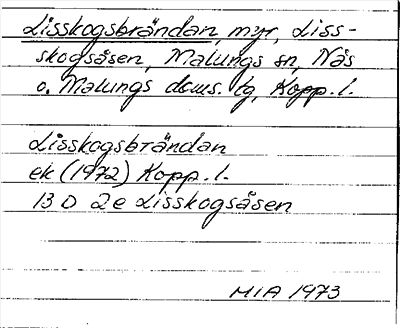 Lisskogsbrändan, myr, Liss-
skogsåsen, Malungs sn, Nås
o. Malungs doms. tg, Kopp. l.
Lisskogsbrändan
ek (1972) Kopp. l.
13 D 2e Lisskogsåsen
MIA 1973